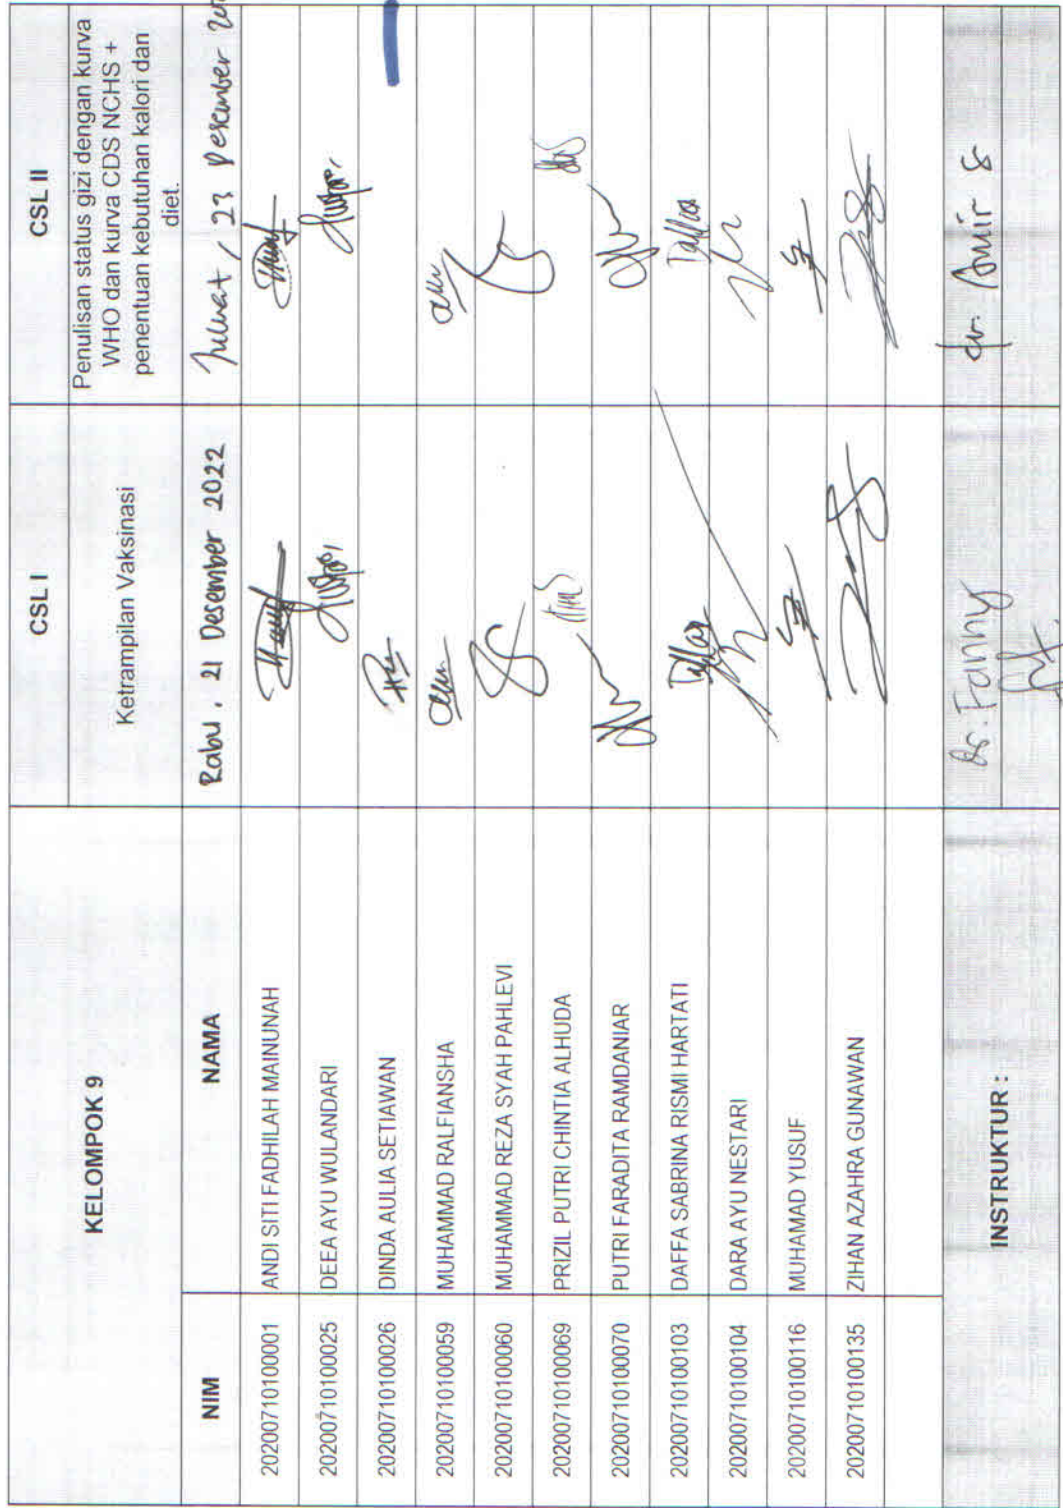 KELOMPOK 9
CSL I
CSL II
Ketrampilan Vaksinasi
Penulisan status gizi dengan kurva
WHO dan kurva CDS NCHS +
penentuan kebutuhan kalori dan
diet.
NIM
NAMA
Rabu, 21 Desember 2022
Jumat, 23 Desember
20200710100001 ANDI SITI FADHILAH MAINUNAH
20200710100025 DEEA AYU WULANDARI
20200710100026 DINDA AULIA SETIAWAN
20200710100059 MUHAMMAD RALFIANSHA
20200710100060 MUHAMMAD REZA SYAH PAHLEVI
20200710100069 PRIZIL PUTRI CHINTIA ALHUDA
20200710100070 PUTRI FARADITA RAMDANIAR
20200710100103 DAFFA SABRINA RISMI HARTATI
20200710100104 DARA AYU NESTARI
20200710100116 MUHAMAD YUSUF
20200710100135 ZIHAN AZAHRA GUNAWAN
INSTRUKTUR :
dr. Fanny
dr. Amir S